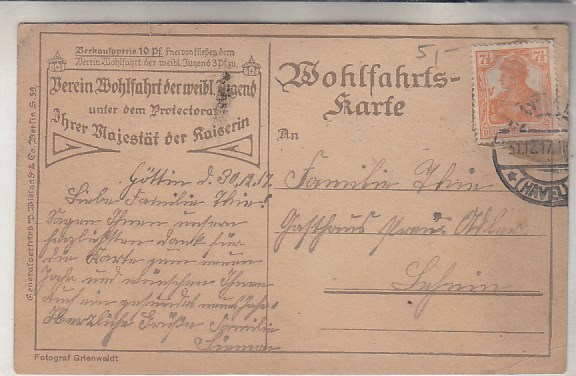 Verkaufspreis 10 Pf. Hiervon fließen dem
Verein Wohlfahrt der weibl. Jugend 3 Pf. zu.
Verein Wohlfahrt der weibl. Jugend
unter dem Protectorat
Ihrer Majestät der Kaiserin
5,-
Wohlfahrts-
Karte
An
7½ 7½
31.12.17.
(HAVEL)
Familie Thie
Gasthaus Adler
Lehnin
Göttin d. 30.12.17.
Liebe Familie Thie!
Sagen Ihnen unsern
herzlichsten Dank für
die Karte zum neuen
Jahr und wünschen Ihnen
auf ein gesundes
Herzliche Grüße Familie
Generalvertrieb W. & Co. Berlin S. 59.
Fotograf Grienwaldt